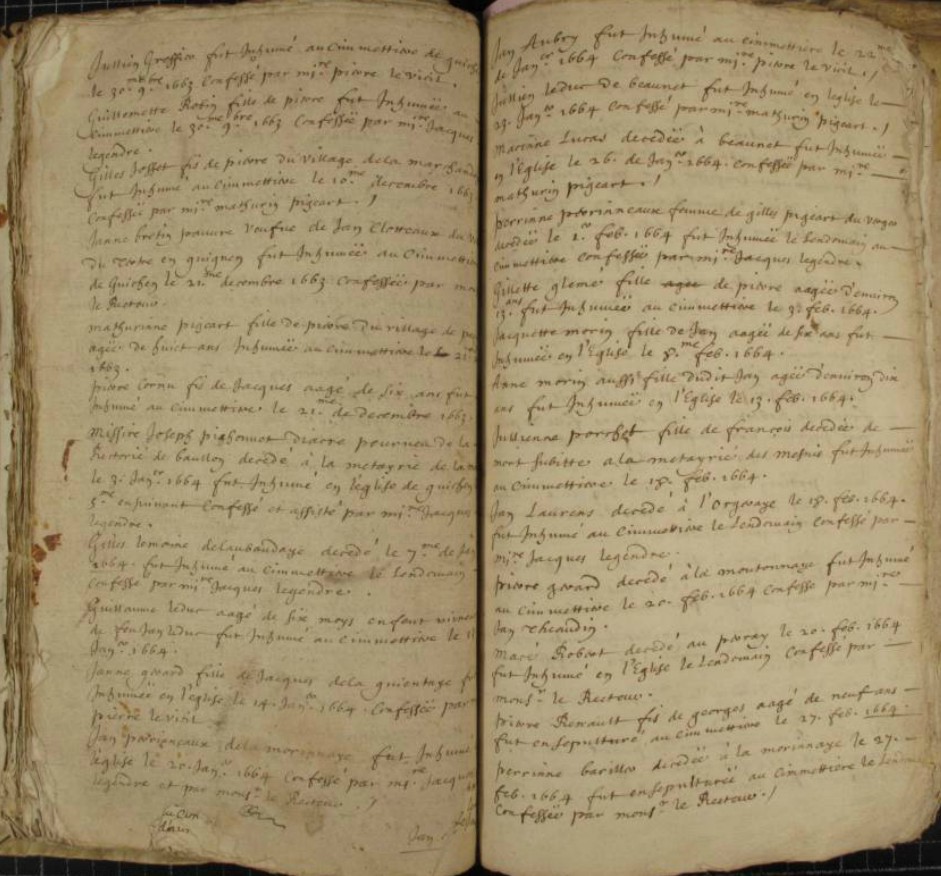 Jullien Gressier fut Inhumé au Cimmettiere de guich
le 30.me 9.bre 1663 Confessé par mi.re pierre le vivil.
Guillemette Robin fille de pierre fut Inhumëe au
Cimmettiere le 30.me 9.bre 1663 Confessëe par mi.re Jacques
legendre.
Gilles Josset fis de pierre du village dela marchand
fut Inhumé au Cimmettiere le 10.me decembre 1663
Confessé par mi.re mathurin pigeart. /
Janne bretin pauvre veufve de Jan Clotteaux du
du Tertre en guignen fut Inhumëe au Cimmettie
de Guichen le 21.me decembre 1663 Confessëe par
le Recteur.
mathurinne pigeart fille de pierre du village de
agëe de huict ans Inhumëe au Cimmettiere le 21
1663.
pierre Cornu fis de Jacques aagé de six ans fut
Inhumé au Cimmettiere le 21.me de decembre 1663.
Missire Joseph pighonnet diacre pourveu de la
Rectorie de baullon decedé à la metayrie de la
le 3. Jan.er 1664 fut Inhumé en leglise de guichen
5.me ensuivant Confessé et assisté par mi.re Jacques
legendre.
Gilles lemoine delaubaudaye decedé le 7.me de Jan
1664. fut Inhumé au Cimmettiere le lendemain
Confessé par mi.re Jacques legendre.
Guillaume leduc aagé de six moys enfent
de feu Jan leduc fut Inhumé au Cimmettiere le
Jan.er 1664.
Janne gerard fille de Jacques dela guientaye
Inhumëe en l'eglise le 14. Jan.er 1664. Confessëe par
pierre le vivil
Jan perrigneaux dela morinnaye fut Inhumé
église le 20. Jan.er 1664 Confessé par mi.re Jacques
legendre et par mons.r le Recteur. /
Jan
Jan Aubry fut Inhumé au Cimmettiere le 22.me
de Jan.er 1664 Confessé par mi.re pierre le vivil. /
Jullien leduc de beaunet fut Inhumé en leglise le
23. Jan.er 1664 Confessé par mi.re mathurin pigeart. /
Marinne Lucas decedëe à beaunet fut Inhumëe
en l'Eglise le 26. de Jan.er 1664. Confessëe par mi.re
mathurin pigeart. /
perrinne perrinneaux femme de gilles pigeart du verger
decedëe le 1.er feb. 1664 fut Inhumëe le lendemain au
Cimmettiere Confessëe par mi.re Jacques legendre.
Gillette glemé fille de pierre aagëe d'environ
13. ans fut Inhumëe au Cimmettiere le 3. feb. 1664.
Jacquette morin fille de Jan aagëe de six ans fut
Inhumëe en l'Eglise le 8.me feb. 1664.
Anne morin aussi fille dudit Jan agëe d'environ dix
ans fut Inhumëe en l'Eglise le 13. feb. 1664.
Jullienne porchet fille de francois decedëe de
mort subitte a la metayrie des mesnis fut Inhumëe
au Cimmettiere le 18. feb. 1664.
Jan Laurens decedé à l'Orgeraye le 18. feb. 1664.
fut Inhumé au Cimmettiere le Lendemain Confessé par
mi.re Jacques legendre.
pierre gerard decedé à la moutonnaye fut Inhumé
au Cimmettiere le 20. feb. 1664 Confessé par mi.re
Jan Theaudin.
Macé Robert decedé au perray le 20. feb. 1664
fut Inhumé en l'Eglise le Lendemain Confessé par
mons.r le Recteur.
pierre Renault fis de georges aagé de neuf ans
fut ensepulturé au Cimmettiere le 27. feb. 1664.
perrinne barillet decedëe à la morinnaye le 27.
feb. 1664 fut ensepulturëe au Cimmettiere le Lendem
Confessëe par mons.r le Recteur. /